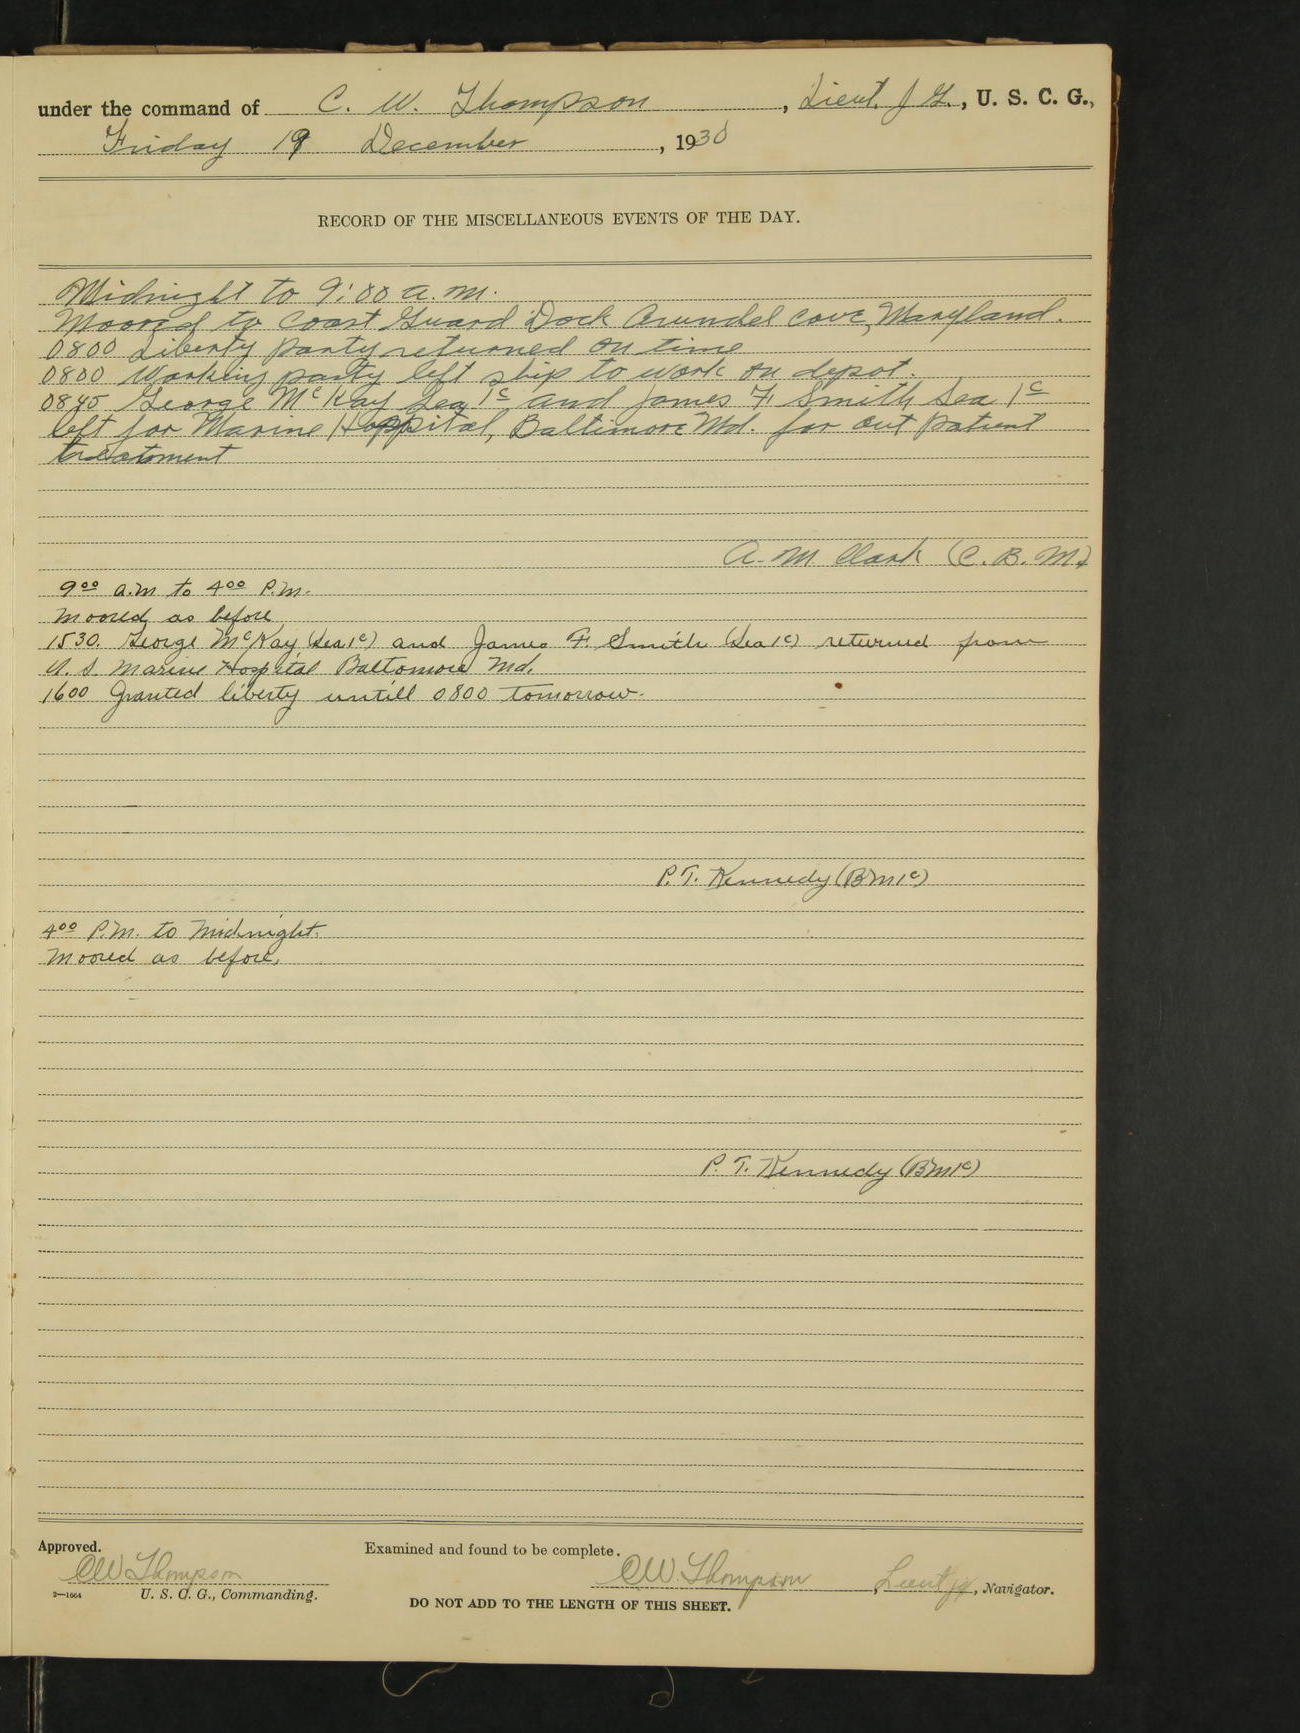 under the command of C. W. Thompson, Lieut. J G., U. S. C. G.,
Friday 19 December, 1930
RECORD OF THE MISCELLANEOUS EVENTS OF THE DAY.
Midnight to 9:00 a.m.
Moored to Coast Guard Dock Arundel Cove, Maryland.
0800 Liberty party returned on time
0800 Working party left ship to work on depot.
0845 George McKay Sea 1c and James F. Smith Sea 1c
left for Marine Hospital, Baltimore Md. for out patient
treatment
A. M Clark (C. B. M.)
9oo a.m to 4oo P.M.
Moored as before
1530. George McKay (Sea 1c) and James F. Smith (Sea 1c) returned from
U. S Marine Hospital Baltomore Md.
1600 Granted liberty untill 0800 tomorrow.
P. T. Kennedy (BM1c)
4oo P.M. to Midnight.
Moored as before.
P. T. Kennedy (BM1c)
Approved.
Examined and found to be complete.
CW Thompson
CW. Thompson, Lieut jg, Navigator.
2—1664
U. S. C. G., Commanding.
DO NOT ADD TO THE LENGTH OF THIS SHEET.